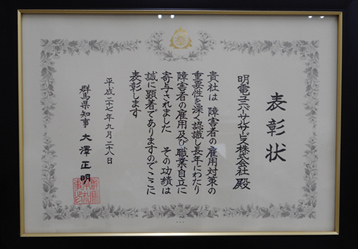 表彰状
明電ユニバーサルサービス株式会社 殿
貴社は 障害者の雇用対策の
重要性を深く認識し長年にわたり
障害者の雇用及び職業自立に
寄与されました その功績は
誠に顕著でありますのでここに
表彰します
平成二十七年九月二十八日
群馬県知事 大澤正明